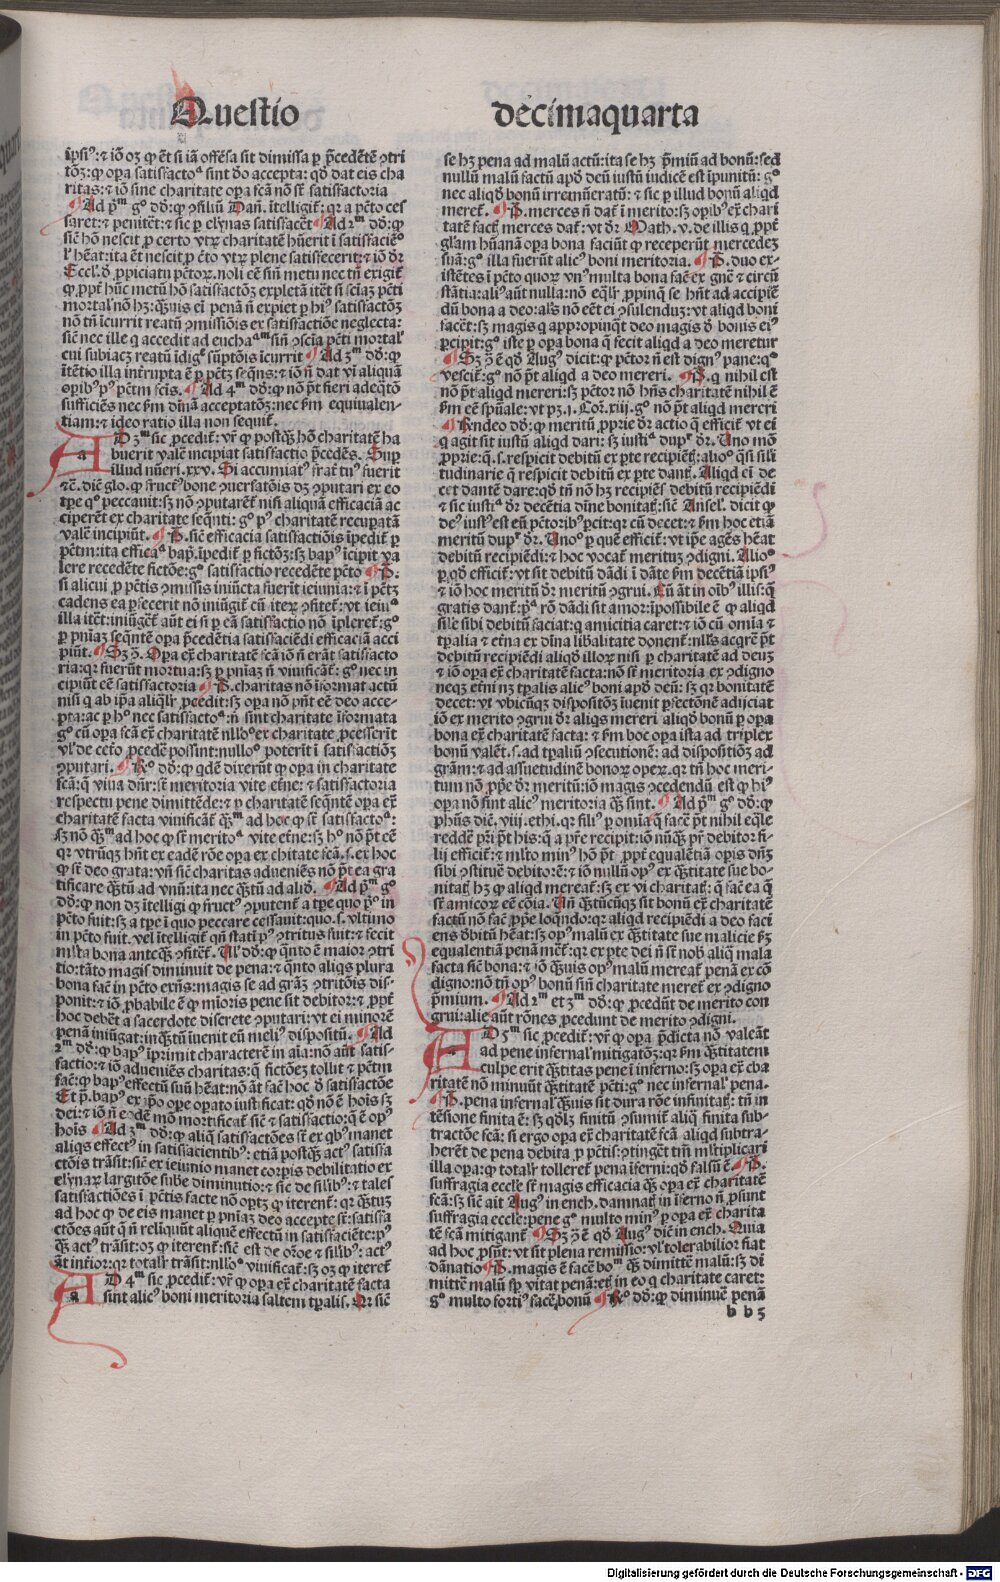 Questio decimaquarta
ipsiꝰ: ⁊ iō oꝫ ꝙ ēt si iā offēsa sit dimissa ꝑ p̄cedētē ꝯtri
tōꝫ: ꝙ oꝑa satisfactoᵃ sint d̄o accepta: qđ dat eis cha
ritas: ⁊ iō sine charitate oꝑa fcā nō st̄ satisfactoria
Ad pᵐ gº dđ: ꝙ ꝯsiliū Dan̄. ītelligit̄: qꝛ a pctō ces
saret: ⁊ penitēt: ⁊ sic ꝑ elynas satisfacēt Ad 2ᵐ dđ: ꝙ
sic hō nescit ꝓ certo vtꝝ charitatē hūerit ī satisfaciēº
l' hēat: ita ēt nescit ꝓ cto vtꝝ plene satisfecerit: ⁊ iō dr̄
Eccl. đ ꝓpiciatu pctoꝝ. noli eē sin̄ metu nec tn̄ exigit̄
ꝙ ꝓpt̄ hūc metū hō satisfactōꝫ expletā itēt si sciaꝫ pcti
mortal' nō hꝫ: q̄uis ei penā n̄ expiet ꝑ hiꝰ satisfactōꝫ
nō tn̄ icurrit reatū ꝯmissiōis ex satisfactiōe neglecta:
sic nec ille q accedit ad euchaᵃᵐ sin̄ ꝯscīa pcti mortal'
cui subiacꝫ reatū īdigᵉ sūptōis icurrit Ad 3ᵐ dđ: ꝙ
itētio illa intrupta ē ꝑ pctꝫ seqns: ⁊ iō n̄ dat vi aliquā
oꝑibꝰ pꝰ pctm fcis. Ad 4ᵐ dđ: ꝙ nō pt̄ fieri adeqtō
sufficiēs nec ẜm diuinā acceptatōꝫ: nec ẜm equiualen-
tiam: ⁊ ideo ratio illa non sequit̄.
AD 3ᵐ sic ꝓcedit̄: vr̄ ꝙ postq̄ꝫ hō charitatē ha
buerit valēt incipiat satisfactio p̄cedēs. Suꝑ
illud nūeri. xxv. Si accumiat' frat̄ tuꝰ fuerit
⁊c. dic̄ glo. ꝙ fructꝰ bone ꝯuersatōis dꝫ ꝯputari ex eo
tꝑe qº peccauit: sꝫ nō ꝯputaret̄ nisi aliquā efficaciā ac
ciperēt ex charitate seqn̄ti: gº pꝰ charitatē recuꝑatā
valēt incipiūt. P. sic efficacia satisfactiōis īpedit̄ ꝑ
pctm: ita efficaᵃ bap̄. īpedit̄ ꝑ fictōꝫ: sꝫ bapꝰ īcipit va
lere recedēte fictōe: gº satisfactio recedēte pctō P.
si alicui ꝓ pctis ꝯmissis iniūcta fuerit ieiunia: ⁊ i pctꝫ
cadens ea ꝑfecerit nō iniūgit̄ cū iteꝝ ꝯfitet̄: vt ieiuᵃ
illa itet̄: iniūget̄ aūt ei si ꝑ eā satisfactio nō īpleret̄: gº
ꝑ pniaꝫ seqn̄tē oꝑa p̄cedētia satisfaciēdi efficaciā acci
piūt. Sꝫ ꝯ̄. Oꝑa ex̄ charitatē fcā iō n̄ erāt satisfacto
ria: qꝛ fuerūt mortua: sꝫ ꝑ pniaꝫ n̄ viuificāt̄: gº nec in
cipiūt eē satisfactoria P. charitas nō īformat actū
nisi q ab ipa aliq̄lr̄ ꝓcedit: sꝫ oꝑa nō pn̄t eē deo acce-
pta: ac ꝑ hº nec satisfactoᵃ: n̄ sint charitate iformata
gº cū oꝑa fcā ex̄ charitatē nllºº ex charitate ꝓcesserīt
vl' de cetō ꝓcedē possint: nulloº poterīt ī satisfactiōꝫ
ꝯputari. Rº dđ: ꝙ qdē dixerūt ꝙ oꝑa in charitate
fcā: q̄ viua dn̄r: st̄ meritoria vite etn̄e: ⁊ satisfactoria
respectu pene dimittēde: ⁊ ꝑ charitatē seqn̄tē oꝑa ex̄
charitatē facta viuificāt̄ q̄ᵐ ad hoc ꝙ st̄ satisfactoᵃ:
sꝫ nō q̄ᵐ ad hoc ꝙ st̄ meritoᵃ vite etn̄e: sꝫ hº nō pt̄ eē
qꝛ vtrūqꝫ hn̄t ex eadē rōe oꝑa ex chitate fcā. s. ex hoc
ꝙ st̄ deo grata: vn̄ sic charitas adueniēs nō pt̄ ea gra
tificare q̄ꝫtū ad vnū: ita nec q̄ꝫtū ad aliđ. Ad pᵐ gº
dđ: ꝙ non dꝫ itelligi ꝙ fructꝰ ꝯputent̄ a tꝑe quo pº in
pctō fuit: sꝫ a tꝑe ī quo peccare cessauit: quo. s. vltimo
in pctō fuit. vel itelligit̄ qn̄ stati pꝰ ꝯtritus fuit: ⁊ fecit
mlta bona anteqꝫ ꝯfitet̄. Ul' dđ: ꝙ qn̄to ē maior ꝯtri
tio: tāto magis diminuit de pena: ⁊ qn̄to aliqs plura
bona fac̄ in pctō exn̄s: magis se ad graꝫ ꝯtritōis dis-
ponit: ⁊ iō ꝓbabile ē ꝙ mīoris pene sit debitor: ⁊ ꝓpt̄
hoc debēt a sacerdote discrete ꝯputari: vt ei minorē
penā iniūgat: inq̄ꝫtū īuenit eū meliꝰ dispositū. Ad
2ᵐ dđ: ꝙ bapꝰ īprimit characterē in aīa: nō aūt satis-
factio: ⁊ iō adueniēs charitas: q̄ fictōeꝫ tollit ⁊ pctm
fac̄: ꝙ bapꝰ effectū suū hēat: nō āt fac̄ hoc đ satisfactōe
Et p̄. bapꝰ ex ipo oꝑe oꝑato iustificat: qđ nō ē hois sꝫ
dei: ⁊ iō n̄ eodē mō mortificat̄ sic ⁊ satisfactio: q̄ ē opꝰ
hois Ad 3ᵐ dđ: ꝙ aliq̄ satisfactōes st̄ ex qbꝰ manet
aliqs effectꝰ in satisfacientibꝰ: etiā postq̄ꝫ actꝰ satisfa
ctōis trāsit: sic ex ieiunio manet corpis debilitatio ex
elynaꝝ largitōe sube diminutio: ⁊ sic de silibꝰ: ⁊ tales
satisfactiōes ī pctis facte nō optꝫ ꝙ iterent̄: qꝛ q̄ꝫtuꝫ
ad hoc ꝙ de eis manet ꝑ pniaꝫ deo accepte st̄: satisfa
ctōes aūt q n̄ relīquūt aliquē effectū in satisfaciēte: pꝰ
q̄ꝫ actꝰ trāsit: oꝫ ꝙ iterent̄: sic est de orōe ⁊ silibꝰ: actꝰ
āt interior: qꝛ totalr̄ trāsit: nlloº viuificat̄: sꝫ oꝫ ꝙ iteret̄
AD 4ᵐ sic ꝓcedit̄: vr̄ ꝙ oꝑa ex̄ charitatē facta
sint alicꝰ boni meritoria saltem tꝑalis. Qꝛ sic
se hꝫ pena ad malū actū: ita se hꝫ p̄miū ad bonū: sed
nullū malū factū apđ deū iustū iudicē est īpunitū: gº
nec aliqđ bonū irremūeratū: ⁊ sic ꝑ illud bonū aliqđ
meret̄. P. merces n̄ dat̄ ī merito: sꝫ oꝑibꝰ ex̄ chari
tatē fact' merces dat̄: vt dr̄ Math. v. de illis q ꝓpt̄
glam hūanā oꝑa bona faciūt ꝙ receperūt mercedeꝫ
suā: gº illa fuerūt alicꝰ boni meritoria. P. duo ex-
istētes ī pctō quoꝝ vnꝰ multa bona fac̄ ex gn̄e ⁊ circū
stātia: aliꝰ aūt nulla: nō eq̄lr̄ ꝓpinq̄ se hn̄t ad accipiē
dū bona a deo: als nō eēt ei ꝯsulenduꝫ: vt aliqđ boni
facēt: sꝫ magis q appropinqt̄ deo magis đ bonis eiꝰ
ꝑcipit: gº iste ꝑ oꝑa bona q̄ fecit aliqđ a deo meretur
Sꝫ ꝯ̄ ē qđ Augꝰ dicit: ꝙ pctōr n̄ est dignꝰ pane: qº
vescit̄: gº nō pt̄ aliqđ a deo mereri. P. q nihil est
nō pt̄ aliqđ mereri: sꝫ pctōr nō hn̄s charitatē nihil ē
ẜm eē spūale: vt pꝫ. i. Coꝝ. xiii. gº nō pt̄ aliqđ mereri
Rn̄deo dđ: ꝙ meritū ꝓprie dr̄ actio q̄ efficit̄ vt ei
q agit sit iustū aliqđ dari: sꝫ iustiᵃ dupᵗ dr̄. Uno mō
ꝓprie: q. s. respicit debitū ex ꝑte recipiēt': alioº q̄si sili
tudinarie q̄ respicit debitū ex ꝑte dant'. Aliqđ ei de
cet dantē dare: qđ tn̄ nō hꝫ recipiēs debitū recipiēdi
⁊ sic iustiᵃ dr̄ decētia diuine bonitat': sic Ansel. dicit ꝙ
deꝰ iustꝰ est eū pctoribꝰ ꝑcit: qꝛ cū decet: ⁊ ẜm hoc etiā
meritū dupᵗ dr̄. Unoº ꝑ quē efficit̄: vt ipe agēs hēat
debitū recipiēdi: ⁊ hoc vocat̄ merituꝫ ꝯdigni. Alioº
ꝑ qđ efficit̄: vt sit debitū dādi ī dāte ẜm decētiā ipsiꝰ
⁊ iō hoc meritū dr̄ meritū ꝯgrui. Cū āt in oibꝰ illis: q̄
gratis dant̄: pᵃ rō dādi sit amor: īpossibile ē ꝙ aliqđ
sile sibi debitū faciat: q̄ amicitia caret: ⁊ iō cū omia ⁊
tꝑalia ⁊ etn̄a ex diuina libalitate donent̄: nlls acqrē pt̄
debitū recipiēdi aliqđ illoꝝ nisi ꝑ charitatē ad deuꝫ
⁊ iō oꝑa ex̄ charitatē facta: nō st̄ meritoria ex ꝯdigno
neqꝫ etni neqꝫ tꝑalis alicꝰ boni apđ deū: sꝫ qꝛ bonitatē
decet: vt vbicūqꝫ dispositōꝫ iuenit ꝑfectōnē adijciat
iō ex merito ꝯgrui dr̄ aliqs mereri aliqđ bonū ꝑ oꝑa
bona ex̄ charitatē facta: ⁊ ẜm hoc oꝑa ista ad triplex
bonū valēt. s. ad tꝑaliū ꝯsecutionē: ad dispositiōꝫ ad
grām: ⁊ ad assuetudinē bonoꝝ opeꝝ. qꝛ tn̄ hoc meri-
tum nō ꝓpe dr̄ meritū: iō magis ꝯcedendū est ꝙ hiꝰ
oꝑa nō sint alicꝰ meritoria q̄ꝫ sint. Ad pᵐ gº dđ: ꝙ
phūs dic̄. viij. ethi. qꝛ filiꝰ ꝑ omia q̄ facē pt̄ nihil eq̄le
reddē pri pt̄ his: q̄ a pr̄e recipit: iō nūq̄ꝫ pr̄ debitor fi-
lij efficit̄: ⁊ mlto minꝰ hō pt̄ ꝓpt̄ equalētiā opis dn̄ꝫ
sibi ꝯstituē debitorē: ⁊ iō nullū opꝰ ex q̄ꝫtitate sue bo-
nitat' hꝫ ꝙ aliqđ mereat̄: sꝫ ex vi charitat': q̄ fac̄ ea q̄
st̄ amicoꝝ eē cōia. Un̄ q̄ꝫtūcūqꝫ sit bonū ex̄ charitatē
factū nō fac̄ ꝓpe loqn̄do: qꝛ aliqđ recipiēdi a deo faci
ens đbitū hēat: sꝫ opꝰ malū ex q̄ꝫtitate sue malicie hꝫ
equalentiā penā meret̄: qꝛ ex ꝑte dei n̄ st̄ nob aliq̄ mala
facta sic bona: ⁊ iō q̄ꝫuis opꝰ malū mereat̄ penā ex cō
digno: nō tn̄ opꝰ bonū sin̄ charitate meret̄ ex ꝯdigno
p̄mium. Ad 2ᵐ et 3ᵐ dđ: ꝙ ꝓcedūt de merito con
grui: alie aūt rōnes ꝓcedunt de merito ꝯdigni.
AD 5ᵐ sic ꝓcedit̄: vr̄ ꝙ oꝑa p̄dicta nō valeāt
ad pene infernal' mitigatōꝫ: qꝛ ẜm q̄ꝫtitatem
culpe erit q̄ꝫtitas pene ī inferno: sꝫ oꝑa ex̄ cha
ritatē nō minuūt q̄ꝫtitatē pcti: gº nec infernal' pena.
P. pena infernal' q̄ꝫuis sit dura rōe infinitat': tn̄ in
tēsione finita ē: sꝫ qđlꝫ finitū ꝯsumit̄ aliq̄ finita sub-
tractōe fcā: si ergo oꝑa ex̄ charitatē fcā aliqđ subtra-
herēt de pena debita ꝓ pctis: ꝯtinget̄ tm̄ mltiplicari
illa oꝑa: ꝙ totalr̄ tolleret̄ pena iferni: qđ falsū ē. P.
suffragia ecclie st̄ magis efficacia q̄ꝫ oꝑa ex̄ charitatē
fcā: sꝫ sic ait Augꝰ in ench. damnat' in iferno n̄ ꝓsunt
suffragia ecclie: pene gº multo minꝰ ꝑ oꝑa ex̄ charita
tē fcā mitigant̄ Sꝫ ꝯ̄ ē qđ Augꝰ dic̄ in ench. Quia
ad hoc ꝓsūt: vt sit plena remissio: vl' tolerabilior fiat
dānatio P. magis ē facē boᵐ q̄ꝫ dimittē malū: sꝫ di
mittē malū sꝑ vitat penā: et' in eo q charitate caret:
gº multo fortiꝰ facē bonū Rº dđ: ꝙ diminuē penā
b b 3
Digitalisierung gefördert durch die Deutsche Forschungsgemeinschaft - DFG